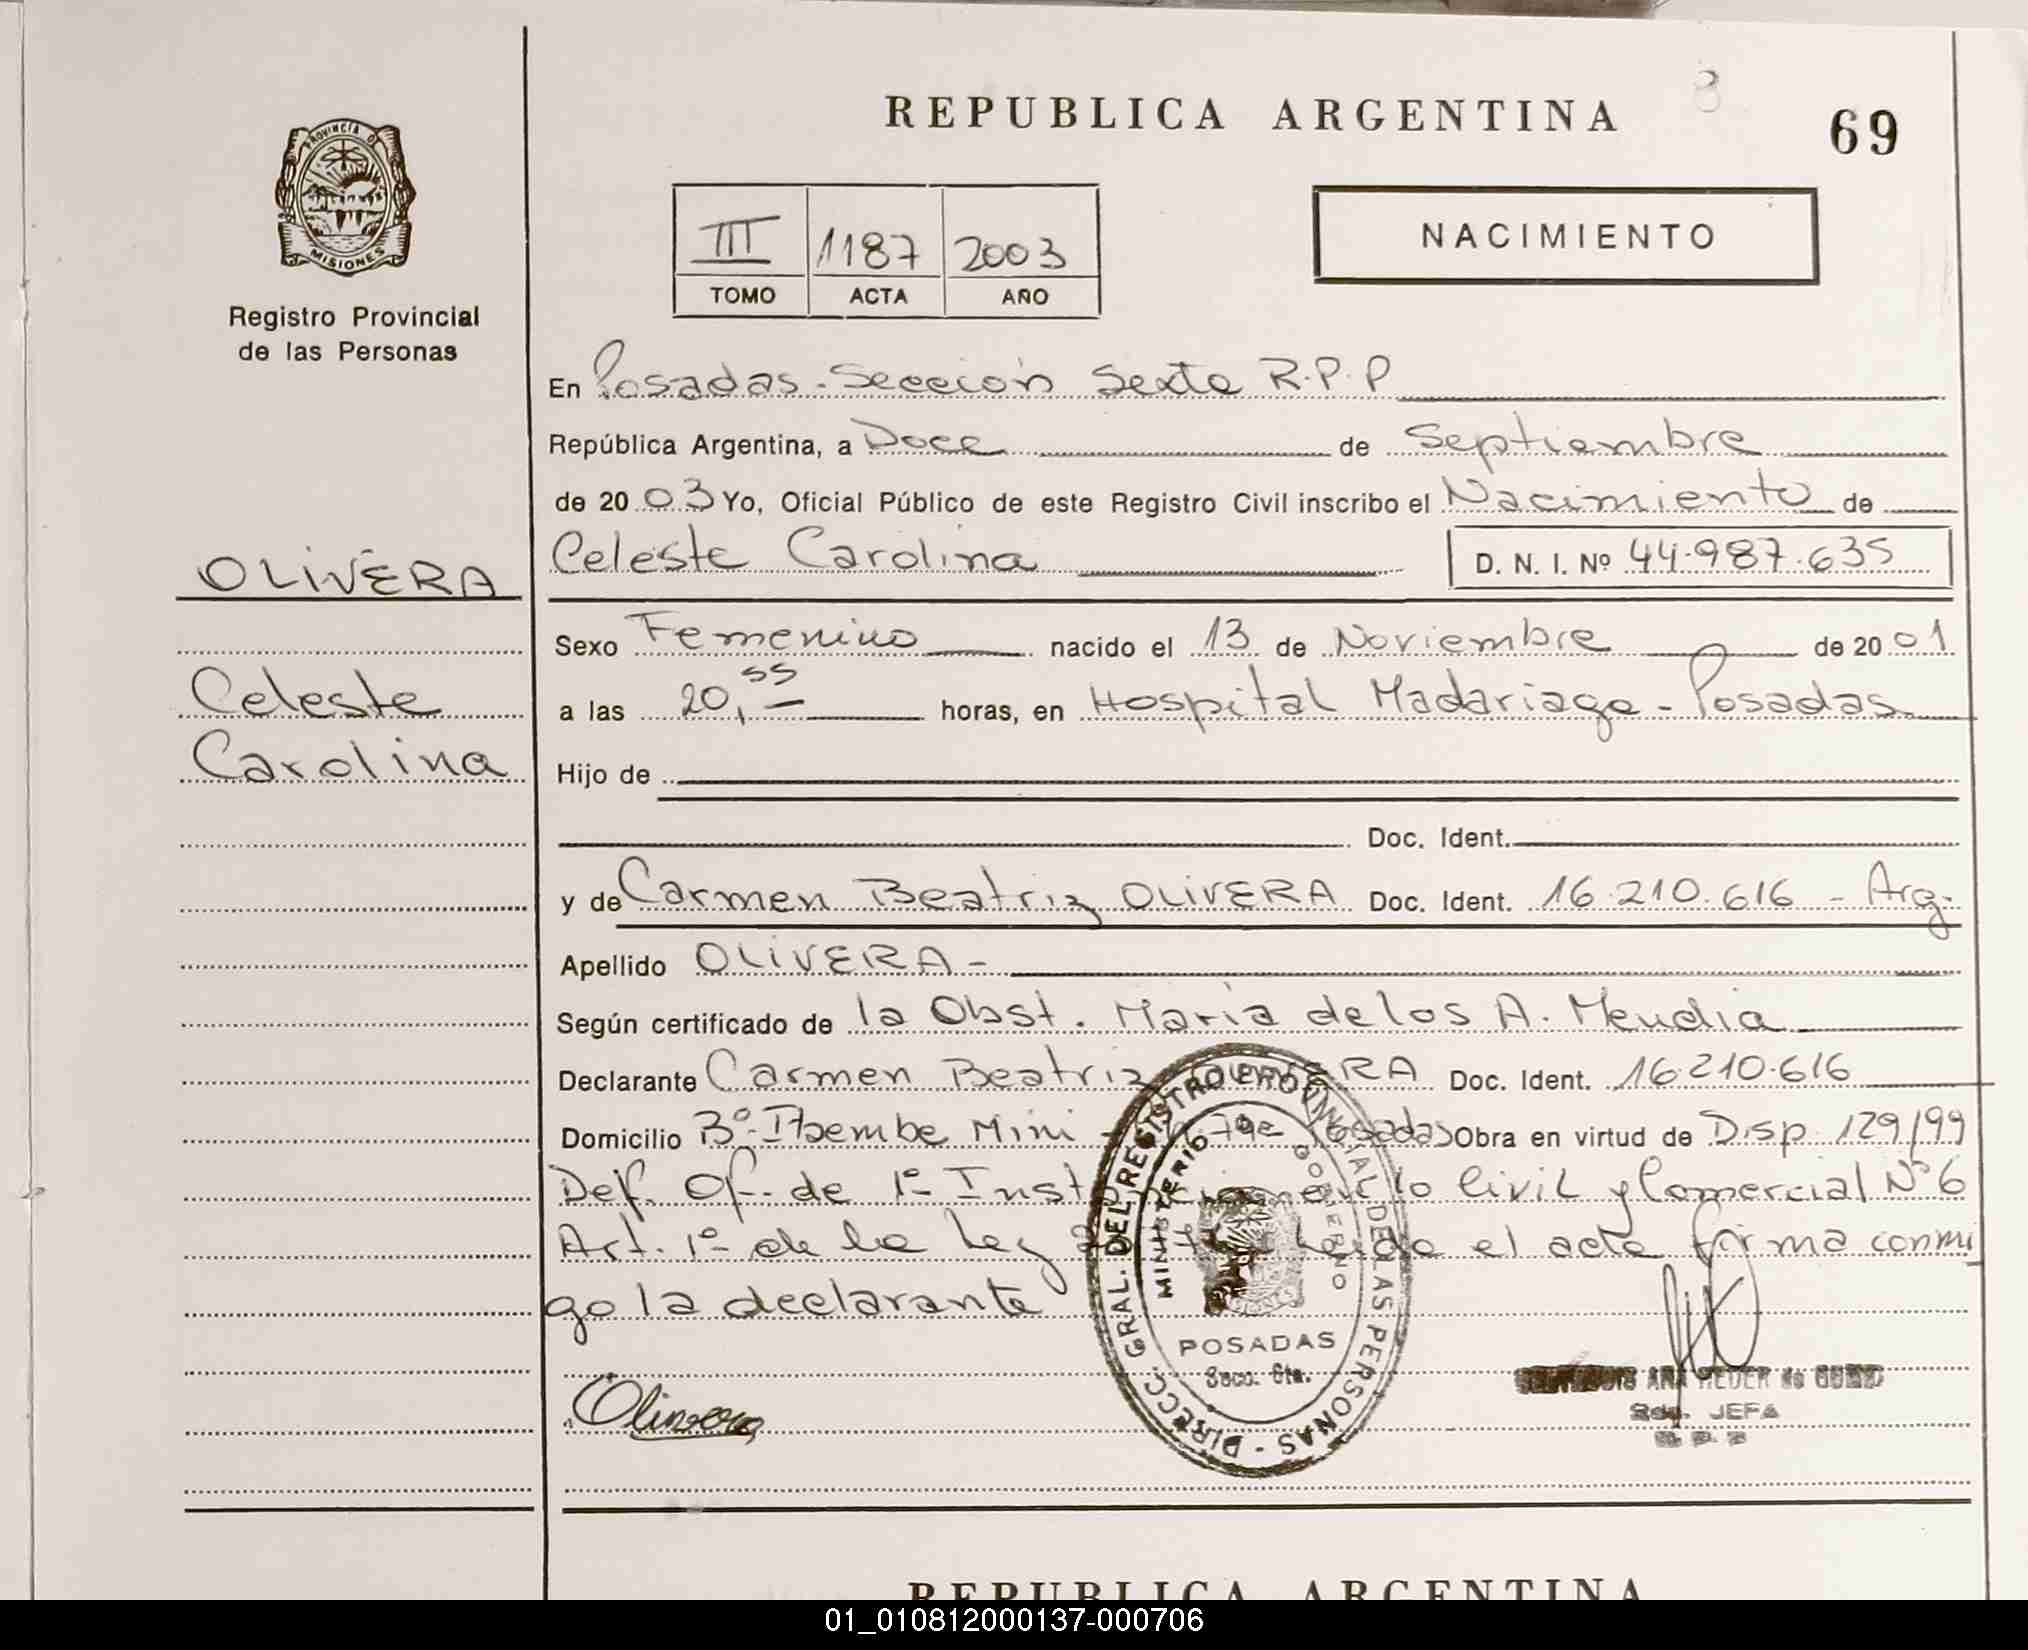 REPUBLICA ARGENTINA
69
PROVINCIA DE
MISIONES
Registro Provincial
de las Personas
III 1187 2003
TOMO ACTA AÑO
NACIMIENTO
En Posadas - Sección Sexta R.P.P
República Argentina, a Doce de Septiembre
de 20 03 Yo, Oficial Público de este Registro Civil inscribo el Nacimiento de
OLIVERA
Celeste Carolina D. N. I. Nº 44.987.635
Sexo Femenino nacido el 13 de Noviembre de 20 01
Celeste
a las 20,55 horas, en Hospital Madariaga - Posadas
Carolina
Hijo de
Doc. Ident.
y de Carmen Beatriz OLIVERA Doc. Ident. 16.210.616 - Arg.
Apellido OLIVERA -
Según certificado de la Obst. Maria de los A. Mendia
Declarante Carmen Beatriz OLIVERA Doc. Ident. 16.210.616
Domicilio Bº Itaembe Mini - Posadas Obra en virtud de Disp. 129/99
Def. Of. de 1º Inst. en lo Civil y Comercial Nº 6
Art. 1º de la Ley Leida el acta firma conmi
go la declarante
DIRECC. GRAL. DEL REGISTRO PROVINCIAL DE LAS PERSONAS
MINISTERIO DE GOBIERNO
POSADAS
Secc. 6ta.
Olivera
JEFA
REPUBLICA ARGENTINA
01_010812000137-000706